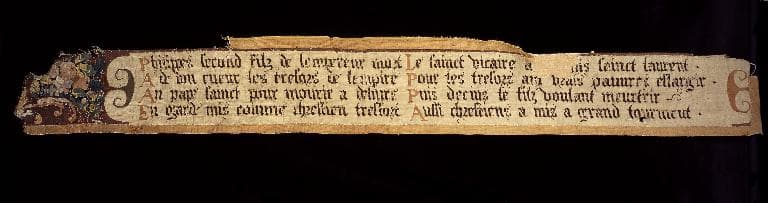 Phlippes second filz de lempereur mort
A de bon cueur les tresors de lempire
Au pape sainct pour mourir a delivre
En garde mis comme chrestien tresfort
Le sainct vicaire a mis sainct laurent
Pour les tresors aux vrais pauvres eslargir
Puis decius le filz voulant meurtrir
Aussi chrestiens a mis a grand tourment